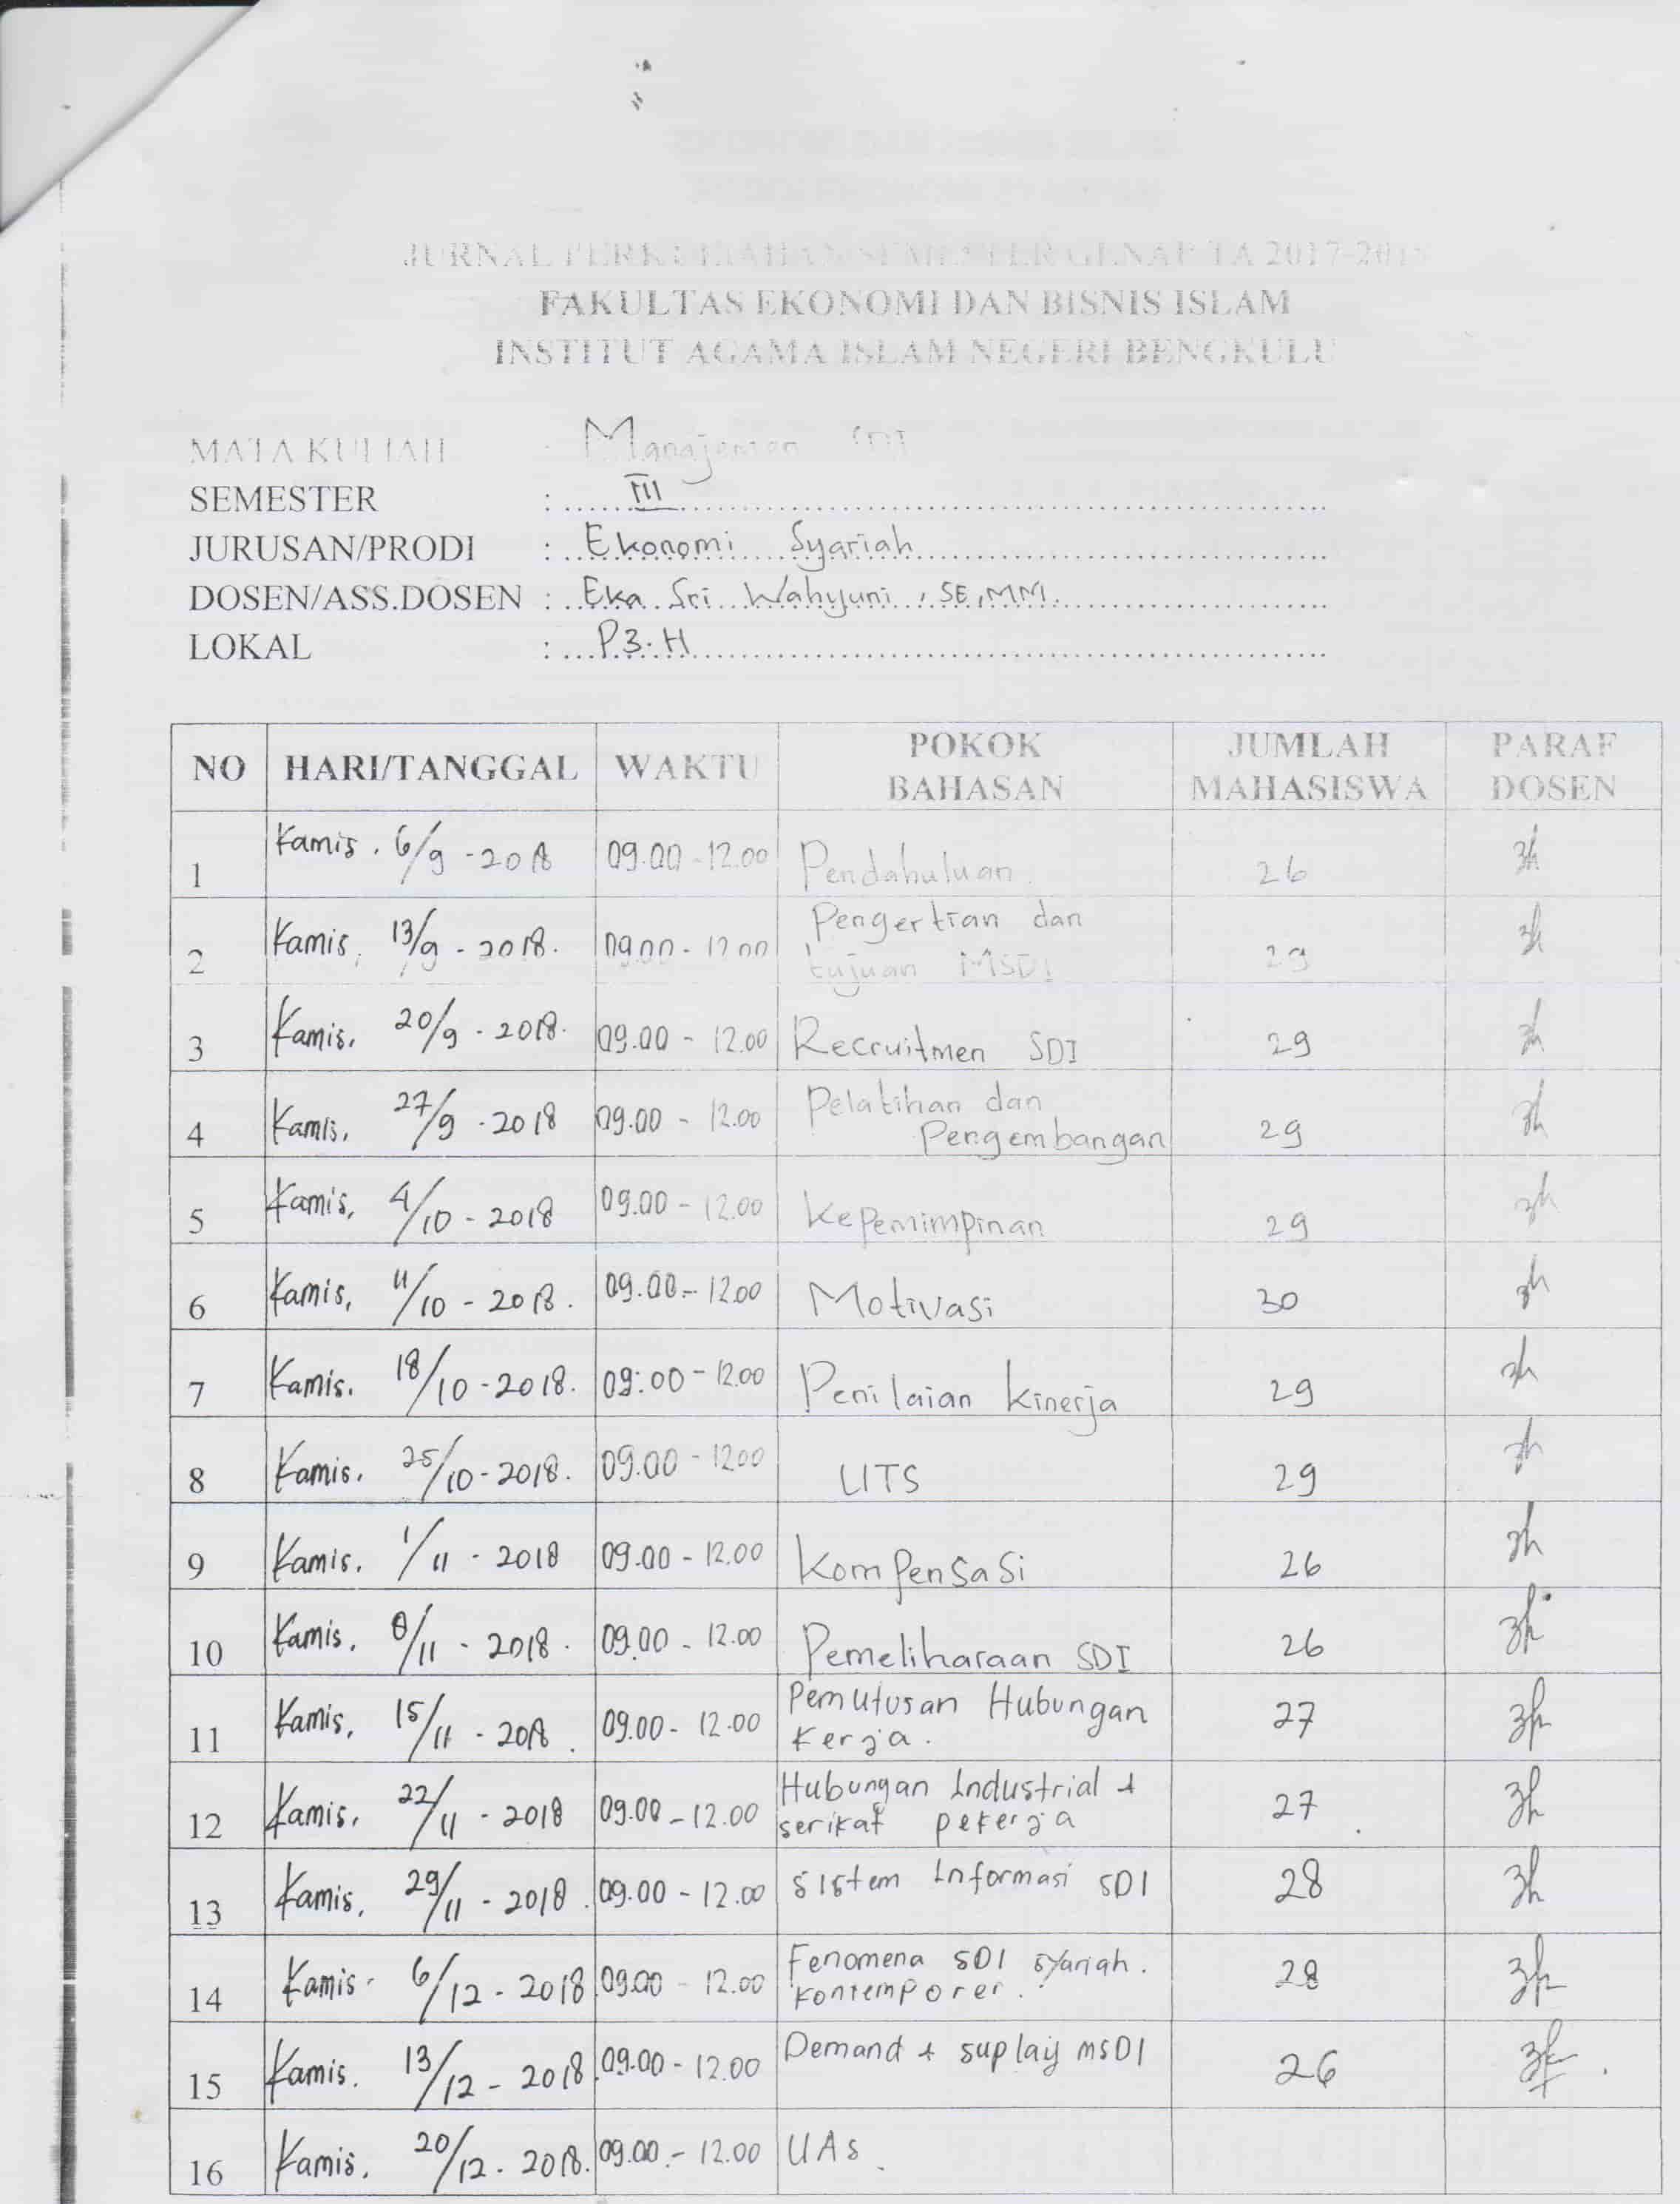 JURNAL PERKULIAHAN SEMESTER GENAP TA 2017-2018
FAKULTAS EKONOMI DAN BISNIS ISLAM
INSTITUT AGAMA ISLAM NEGERI BENGKULU
MATA KULIAH : Manajemen SDI
SEMESTER : III
JURUSAN/PRODI : Ekonomi Syariah
DOSEN/ASS.DOSEN : Eka Sri Wahyuni, SE, MM.
LOKAL : P3.H
NO HARI/TANGGAL WAKTU POKOK BAHASAN JUMLAH MAHASISWA PARAF DOSEN
1 Kamis, 6/9 - 2018 09.00 - 12.00 Pendahuluan 26
2 Kamis, 13/9 - 2018. 09.00 - 12.00 Pengertian dan tujuan MSDI 29
3 Kamis, 20/9 - 2018. 09.00 - 12.00 Recruitmen SDI 29
4 Kamis, 27/9 - 2018 09.00 - 12.00 Pelatihan dan Pengembangan 29
5 Kamis, 4/10 - 2018 09.00 - 12.00 Kepemimpinan 29
6 Kamis, 11/10 - 2018. 09.00 - 12.00 Motivasi 30
7 Kamis. 18/10 - 2018. 09:00 - 12.00 Penilaian Kinerja 29
8 Kamis. 25/10 - 2018. 09.00 - 12.00 UTS 29
9 Kamis. 1/11 - 2018 09.00 - 12.00 Kompensasi 26
10 Kamis. 8/11 - 2018. 09.00 - 12.00 Pemeliharaan SDI 26
11 Kamis, 15/11 - 2018. 09.00 - 12.00 Pemutusan Hubungan Kerja. 27
12 Kamis. 22/11 - 2018 09.00 - 12.00 Hubungan Industrial + serikat pekerja 27
13 Kamis, 29/11 - 2018. 09.00 - 12.00 Sistem Informasi SDI 28
14 Kamis. 6/12 - 2018 09.00 - 12.00 Fenomena SDI syariah. kontemporer. 28
15 Kamis. 13/12 - 2018. 09.00 - 12.00 Demand + suplaiy MSDI 26
16 Kamis. 20/12 - 2018. 09.00 - 12.00 UAS.